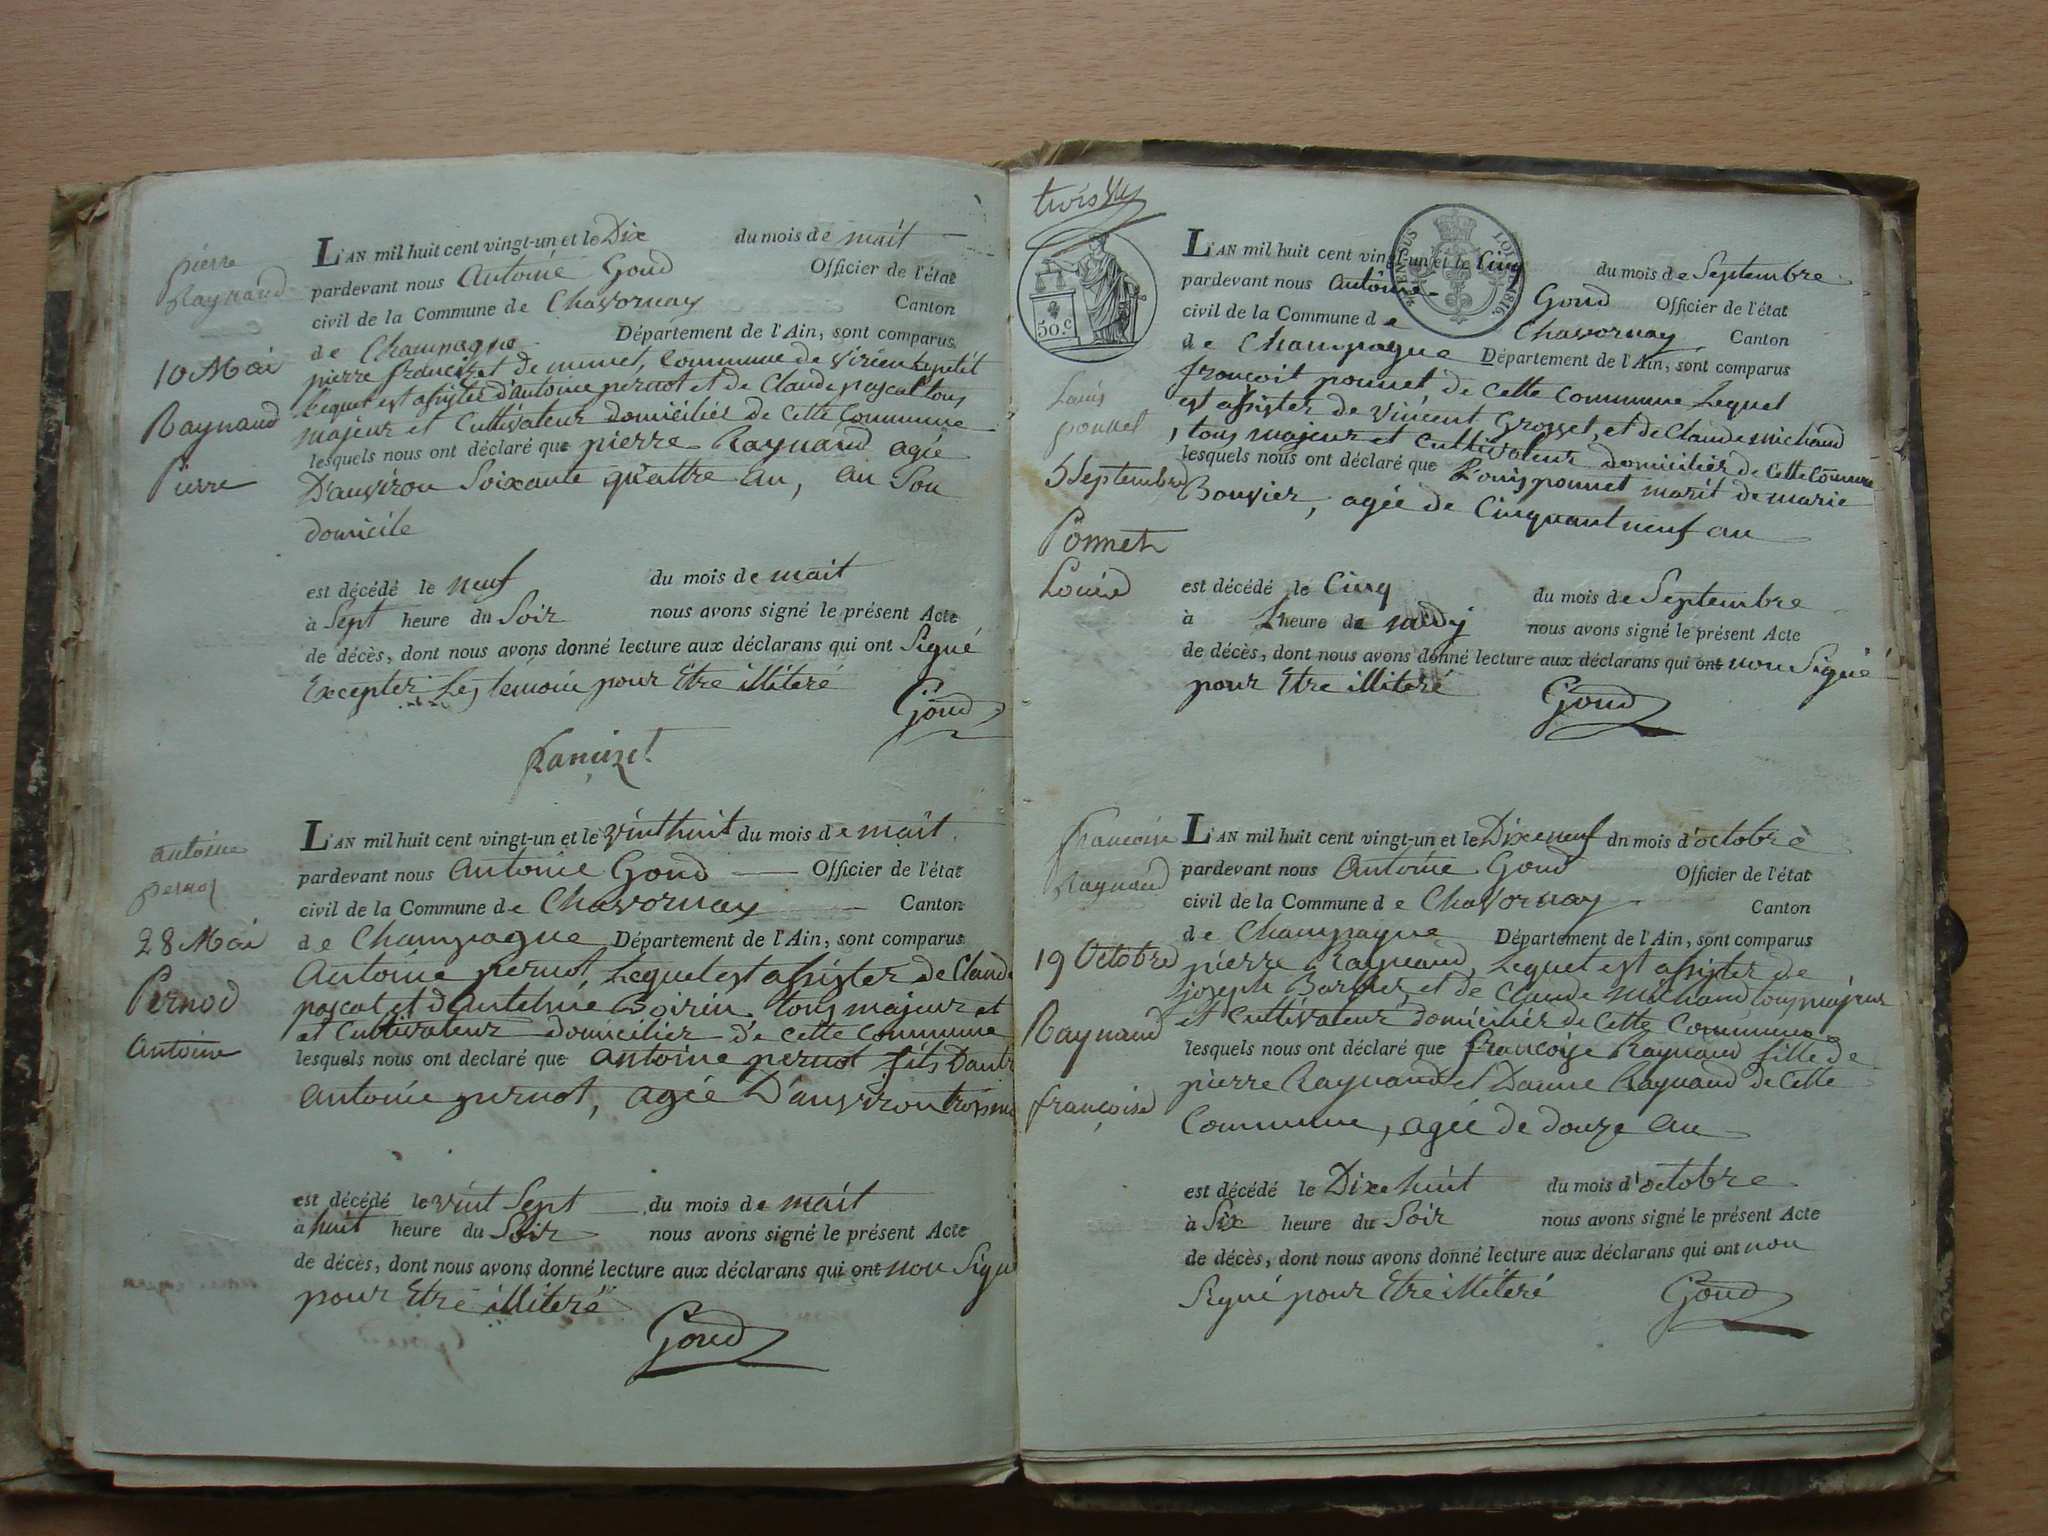 pierre
Raynaud
10 Mai
Raynaud
Pierre
L'AN mil huit cent vingt-un et le Dix du mois de mait
pardevant nous Antoine Goud Officier de l'état
civil de la Commune de Chavornay Canton
de Champagne Département de l'Ain, sont comparus
pierre francizet de munet, Commune de virieu le petit
Lequel est assister d'antoine pernot et de Claude pascal tous
majeur et Cultivateur domiciliés de Cette Commune
lesquels nous ont déclaré que pierre Raynaud agée
D'anviron Soixante quattre an, au Son
domicile
est décédé le neuf du mois de mait
à Sept heure du Soir nous avons signé le présent Acte
de décès, dont nous avons donné lecture aux déclarans qui ont Signé
Excepter Les temoin pour Etre illiteré
Goud
francizet
antoine
pernot
28 Mai
Pernod
antoine
L'AN mil huit cent vingt-un et le vint huit du mois de mait
pardevant nous Antoine Goud Officier de l'état
civil de la Commune de Chavornay Canton
de Champagne Département de l'Ain, sont comparus
Antoine pernot, Lequel est assister de Claude
pascal et d'Antelme Boirin tous majeur et
et Cultivateur domicilier de Cette Commune
lesquels nous ont déclaré que antoine pernot fils D'autr
antoine pernot, agée D'anviron trois
est décédé le vint Sept du mois de mait
à huit heure du Soir nous avons signé le présent Acte
de décès, dont nous avons donné lecture aux déclarans qui ont non Signé
pour Etre illiteré
Goud
trois
50.c
LOI 1816.
Louis
ponnet
5 Septembre
Ponnet
Louis
L'AN mil huit cent vingt-un et le Cinq du mois de Septembre
pardevant nous Antoine Goud Officier de l'état
civil de la Commune de Chavornay Canton
de Champagne Département de l'Ain, sont comparus
françoit ponnet de Cette Commune Lequel
est assister de vincent Grosset, et de Claude michaud
, tous majeur et cultivateur domiciliés de Cette Commune
lesquels nous ont déclaré que Louis ponnet marit de marie
Bouvier, agée de Cinquant neuf an
est décédé le Cinq du mois de Septembre
à L heure de midy nous avons signé le présent Acte
de décès, dont nous avons donné lecture aux déclarans qui ont non Signé
pour Etre illiteré
Goud
francoise
Raynaud
19 Octobre
Raynaud
françoise
L'AN mil huit cent vingt-un et le Dixeneuf dn mois d'octobre
pardevant nous Antoine Goud Officier de l'état
civil de la Commune de Chavornay Canton
de Champagne Département de l'Ain, sont comparus
pierre Raynaud, Lequel est assister de
joseph Barbier et de Claude michaud tous majeur
et Cultivateur domiciliés de Cette Commune
lesquels nous ont déclaré que francoise Raynaud fille de
pierre Raynaud et Danne Raynaud de Cette
Commune, agée de douze an
est décédé le Dixe huit du mois d'octobre
à Six heure du Soir nous avons signé le présent Acte
de décès, dont nous avons donné lecture aux déclarans qui ont non
Signé pour Etre illiteré
Goud